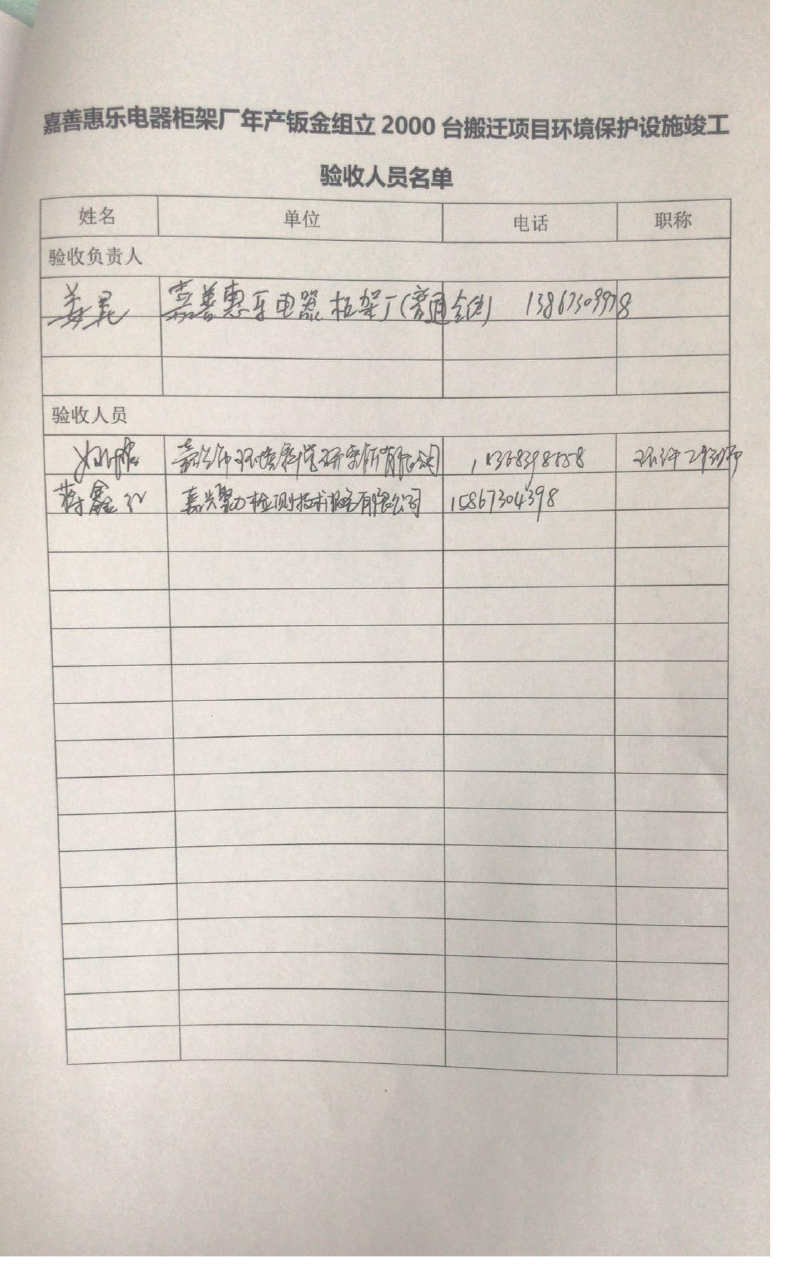 嘉善惠乐电器柜架厂年产钣金组立 2000 台搬迁项目环境保护设施竣工
验收人员名单
姓名 单位 电话 职称
验收负责人
嘉善惠乐电器柜架厂(普通合伙)
验收人员
环境科学研究所有限公司
蒋鑫红 嘉兴聚力检测技术服务有限公司 15867304398